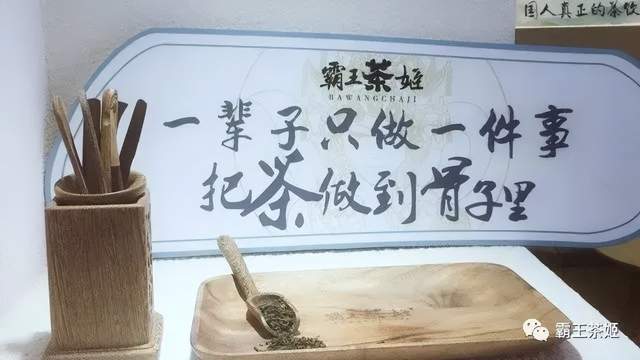 国人真正的茶饮
霸王茶姬
BAWANGCHAJI
一辈子只做一件事
把茶做到骨子里
霸王茶姬